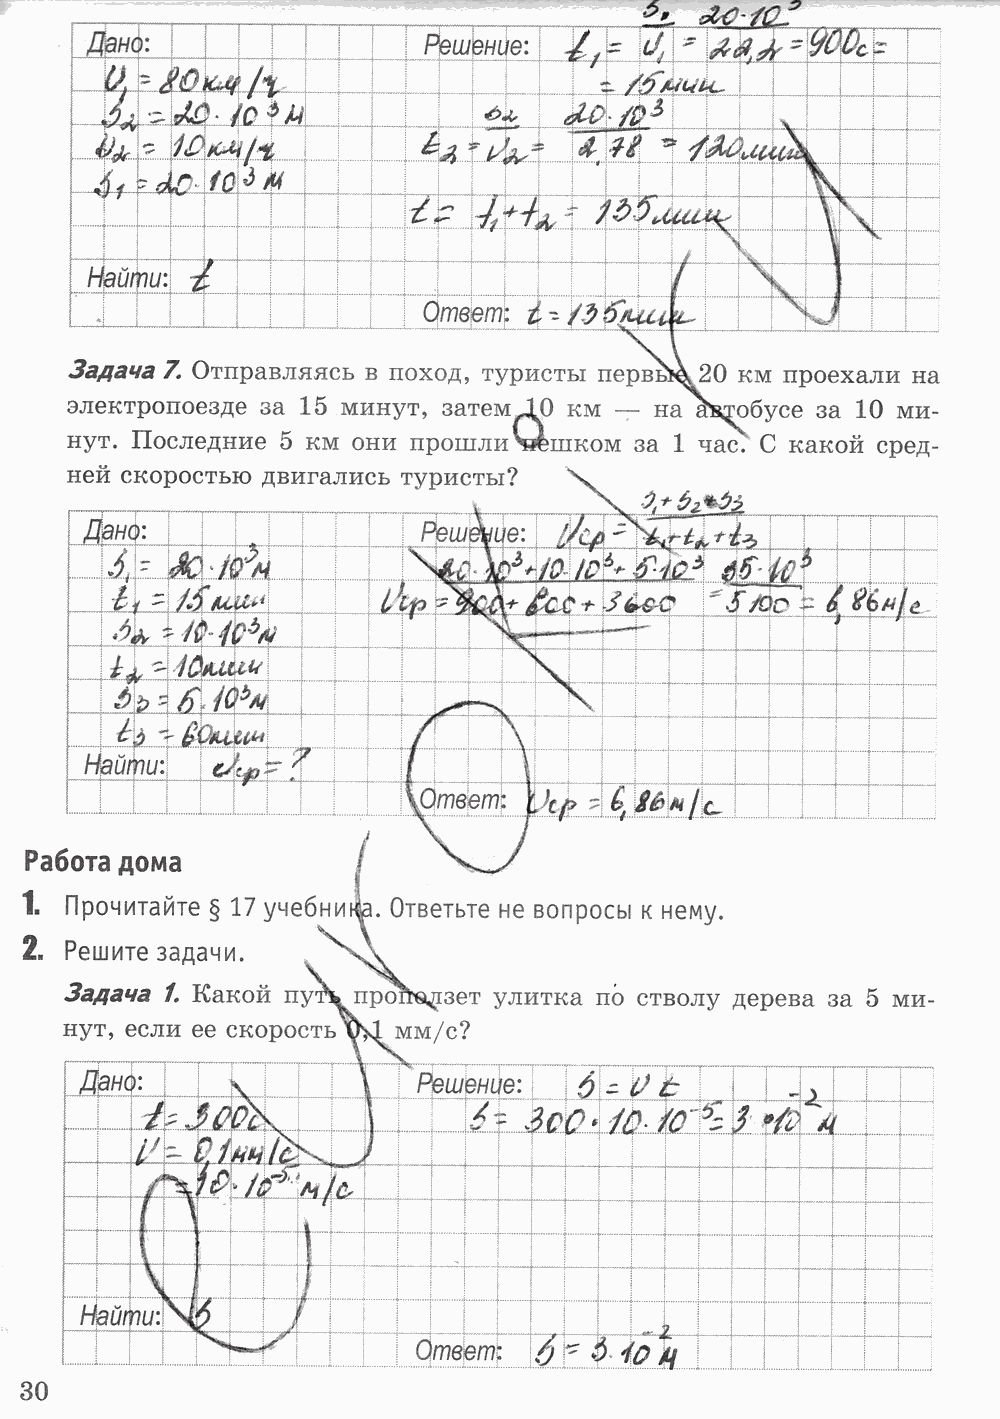 Дано:
υ₁ = 80км/ч
S₂ = 20·10³м
υ₂ = 10км/ч
S₁ = 20·10³м
Найти: t
Решение: t₁ = S₁/υ₁ = 20·10³/22,2 = 900с =
= 15мин
t₂ = S₂/υ₂ = 20·10³/2,78 = 120мин
t = t₁+t₂ = 135мин
Ответ: t = 135мин
Задача 7. Отправляясь в поход, туристы первые 20 км проехали на
электропоезде за 15 минут, затем 10 км — на автобусе за 10 ми-
нут. Последние 5 км они прошли пешком за 1 час. С какой сред-
ней скоростью двигались туристы?
Дано:
S₁ = 20·10³м
t₁ = 15мин
S₂ = 10·10³м
t₂ = 10мин
S₃ = 5·10³м
t₃ = 60мин
Найти: υср = ?
Решение: υср = S₁+S₂+S₃/t₁+t₂+t₃
υср = 20·10³+10·10³+5·10³/900+600+3600 = 35·10³/5100 = 6,86м/с
Ответ: υср = 6,86м/с
Работа дома
1. Прочитайте § 17 учебника. Ответьте не вопросы к нему.
2. Решите задачи.
Задача 1. Какой путь проползет улитка по стволу дерева за 5 ми-
нут, если ее скорость 0,1 мм/с?
Дано:
t = 300с
υ = 0,1мм/с
= 10·10⁻⁵ м/с
Найти: S
Решение: S = υ t
S = 300·10·10⁻⁵ = 3·10⁻² м
Ответ: S = 3·10⁻² м
30